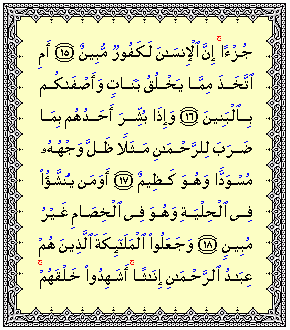 جُزْءًا ۚ إِنَّ ٱلْإِنسَـٰنَ لَكَفُورٌ مُّبِينٌ ﴿١٥﴾ أَمِ
ٱتَّخَذَ مِمَّا يَخْلُقُ بَنَاتٍ وَأَصْفَىٰكُم
بِٱلْبَنِينَ ﴿١٦﴾ وَإِذَا بُشِّرَ أَحَدُهُم بِمَا
ضَرَبَ لِلرَّحْمَـٰنِ مَثَلًا ظَلَّ وَجْهُهُۥ
مُسْوَدًّا وَهُوَ كَظِيمٌ ﴿١٧﴾ أَوَمَن يُنَشَّؤُا۟
فِى ٱلْحِلْيَةِ وَهُوَ فِى ٱلْخِصَامِ غَيْرُ
مُبِينٍ ﴿١٨﴾ وَجَعَلُوا۟ ٱلْمَلَـٰٓئِكَةَ ٱلَّذِينَ هُمْ
عِبَـٰدُ ٱلرَّحْمَـٰنِ إِنَـٰثًا ۚ أَشَهِدُوا۟ خَلْقَهُمْ ۚ